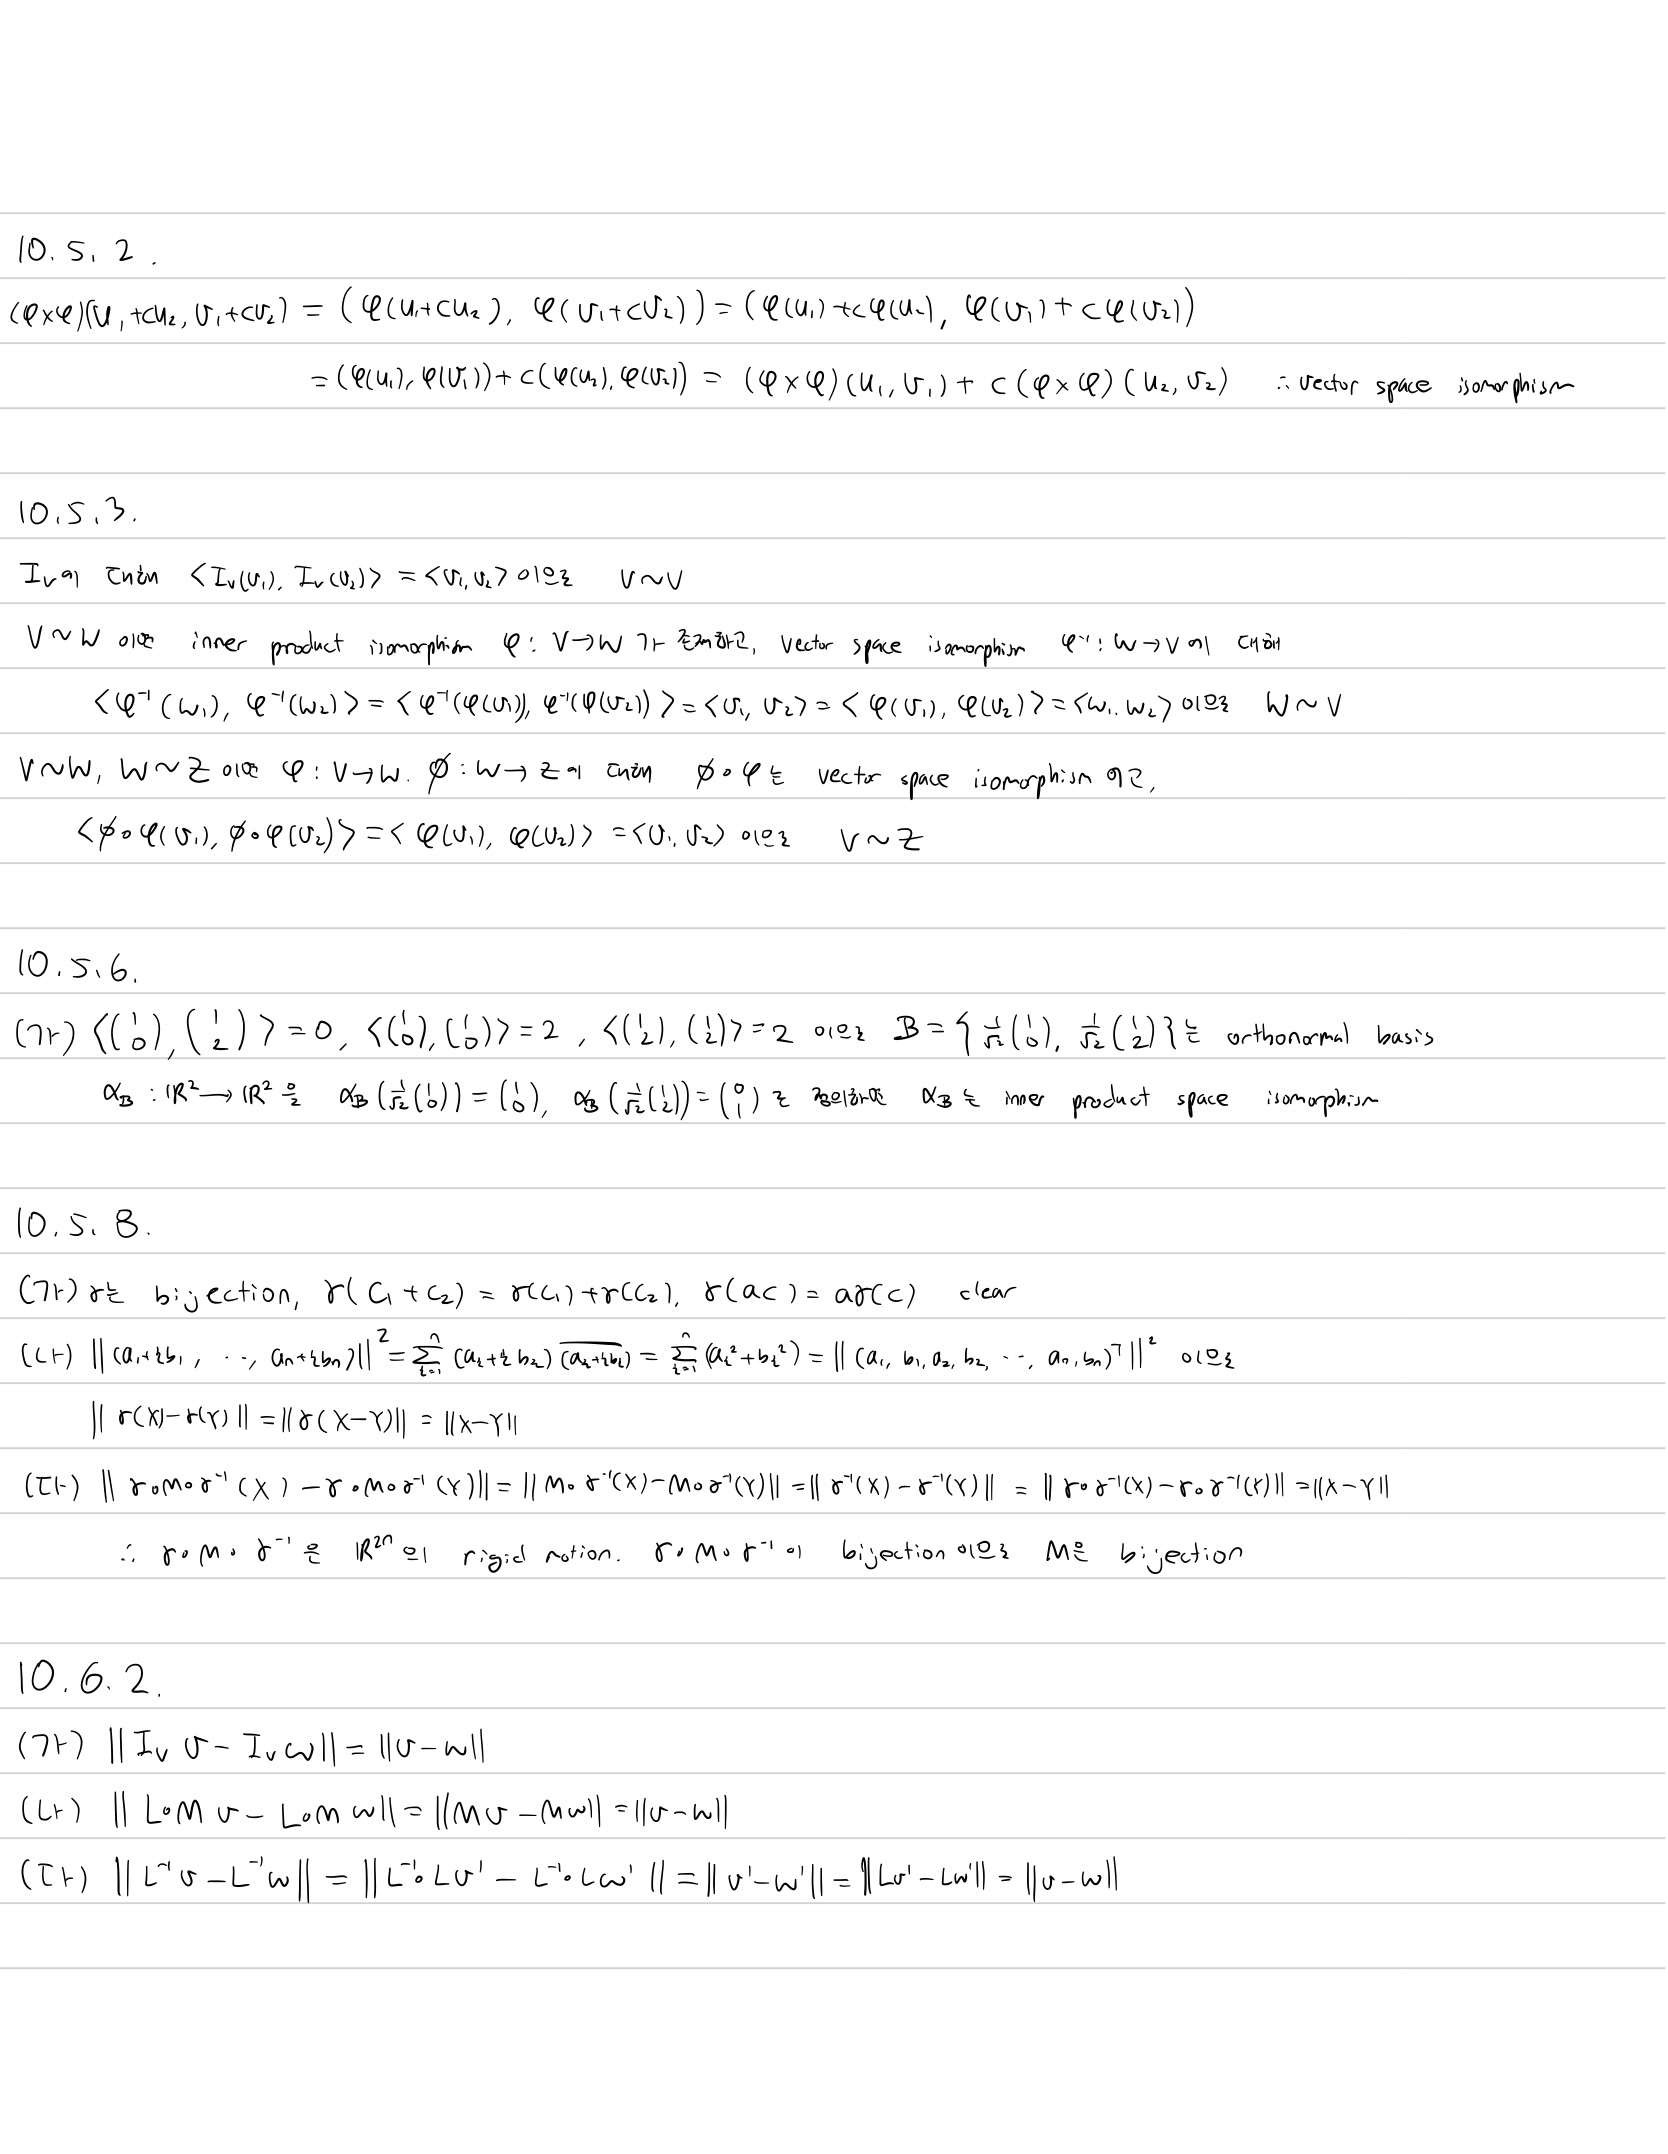 10.5.2.
(φ×φ)(u₁+cu₂, v₁+cv₂) = (φ(u₁+cu₂), φ(v₁+cv₂)) = (φ(u₁)+cφ(u₂), φ(v₁)+cφ(v₂))
= (φ(u₁), φ(v₁)) + c(φ(u₂), φ(v₂)) = (φ×φ)(u₁, v₁) + c(φ×φ)(u₂, v₂) ∴ vector space isomorphism
10.5.3.
I_V에 대해 <I_V(v₁), I_V(v₂)> = <v₁, v₂> 이므로 V~V
V~W 이면 inner product isomorphism φ: V→W 가 존재하고, vector space isomorphism φ⁻¹: W→V 에 대해
<φ⁻¹(w₁), φ⁻¹(w₂)> = <φ⁻¹(φ(v₁)), φ⁻¹(φ(v₂))> = <v₁, v₂> = <φ(v₁), φ(v₂)> = <w₁, w₂> 이므로 W~V
V~W, W~Z 이면 φ: V→W. ∅: W→Z에 대해 ∅∘φ는 vector space isomorphism 이고,
<∅∘φ(v₁), ∅∘φ(v₂)> = <φ(v₁), φ(v₂)> = <v₁, v₂> 이므로 V~Z
10.5.6.
(가) <(1 0), (1 2)> = 0, <(1 0), (1 0)> = 2, <(1 2), (1 2)> = 2 이므로 B = {1/√2 (1 0), 1/√2 (1 2)}는 orthonormal basis
α_B : ℝ² → ℝ² 을 α_B(1/√2 (1 0)) = (1 0), α_B(1/√2 (1 2)) = (0 1) 로 정의하면 α_B 는 inner product space isomorphism
10.5.8.
(가) γ는 bijection, γ(c₁+c₂) = γ(c₁)+γ(c₂), γ(ac) = aγ(c) clear
(나) ||(a₁+ib₁, ..., aₙ+ibₙ)||² = Σᵢ₌₁ⁿ (aᵢ+ibᵢ) \overline{(aᵢ+ibᵢ)} = Σᵢ₌₁ⁿ (aᵢ²+bᵢ²) = ||(a₁, b₁, a₂, b₂, ..., aₙ, bₙ)ᵀ||² 이므로
||γ(X)-γ(Y)|| = ||γ(X-Y)|| = ||X-Y||
(다) ||γ∘M∘γ⁻¹(X) - γ∘M∘γ⁻¹(Y)|| = ||M∘γ⁻¹(X) - M∘γ⁻¹(Y)|| = ||γ⁻¹(X) - γ⁻¹(Y)|| = ||γ∘γ⁻¹(X) - γ∘γ⁻¹(Y)|| = ||X-Y||
∴ γ∘M∘γ⁻¹ 은 ℝ²ⁿ 의 rigid motion. γ∘M∘γ⁻¹ 이 bijection 이므로 M은 bijection
10.6.2.
(가) ||I_V v - I_V w|| = ||v-w||
(나) ||L∘M v - L∘M w|| = ||Mv - Mw|| = ||v-w||
(다) ||L⁻¹v - L⁻¹w|| = ||L⁻¹∘Lv' - L⁻¹∘Lw'|| = ||v'-w'|| = ||Lv' - Lw'|| = ||v-w||